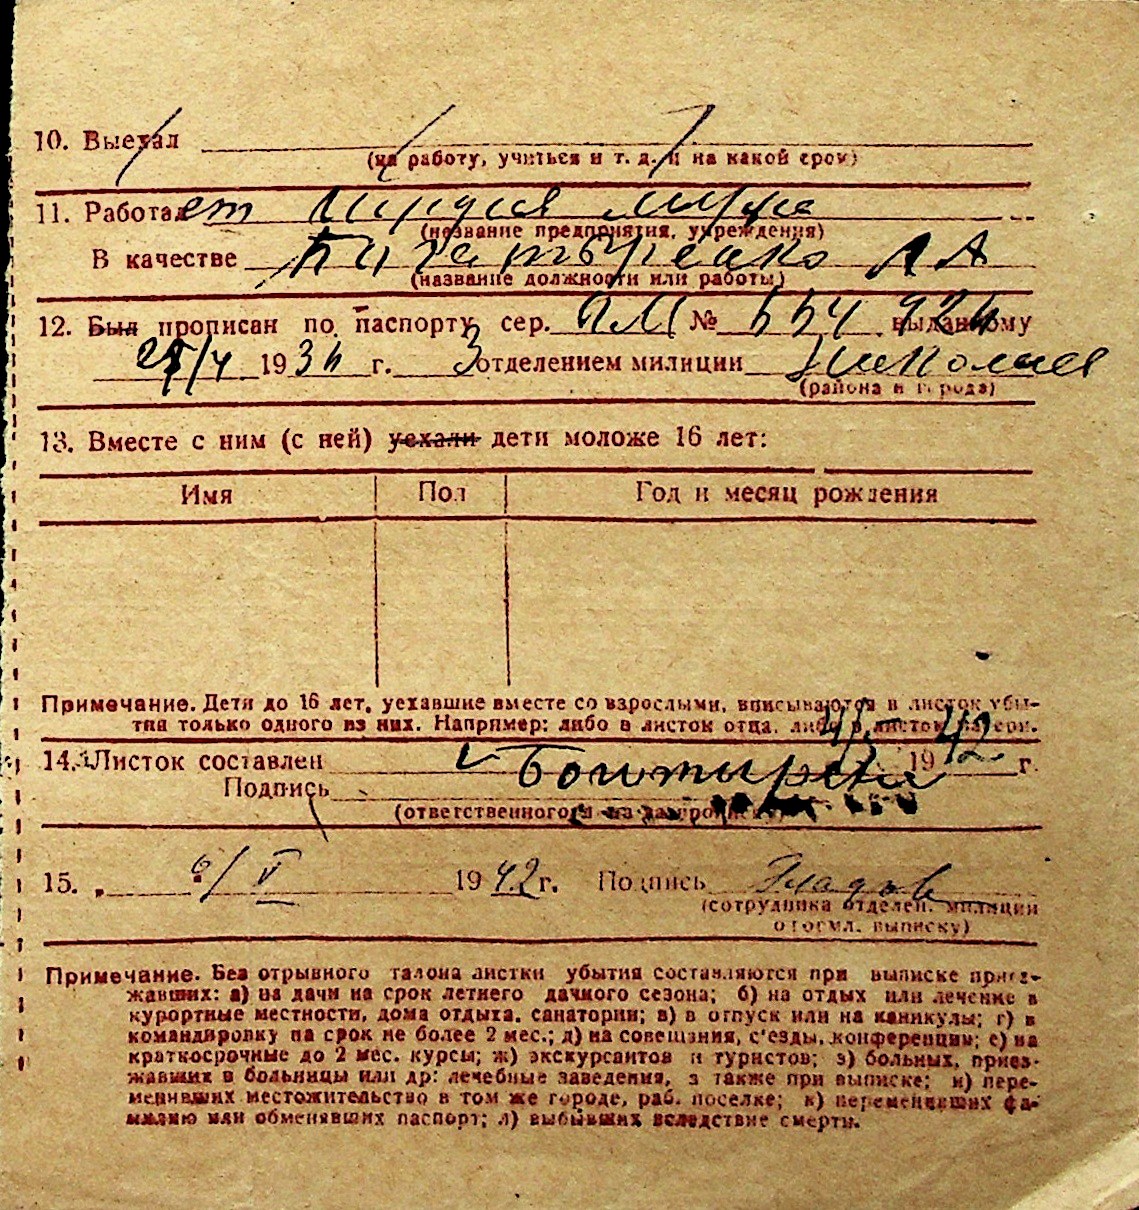 10. Выехал
(на работу, учиться и т. д. и на какой срок)
11. Работает
(название предприятия, учреждения)
В качестве
(название должности или работы)
12. Был прописан по паспорту сер. № 554 924 выданному
1936 г. 3 отделением милиции
(района и города)
13. Вместе с ним (с ней) уехали дети моложе 16 лет:
Имя Пол Год и месяц рождения
Примечание. Дети до 16 лет, уехавшие вместе со взрослыми, вписываются в листок убы-
тия только одного из них. Например: либо в листок отца, либо в листок матери.
14. Листок составлен 4/5 1942 г.
Подпись
(ответственного за
15. 6/V 1942 г. Подпись
(сотрудника отделен. милиции
оформл. выписку)
Примечание. Без отрывного талона листки убытия составляются при выписке приез-
жавших: а) на дачи на срок летнего дачного сезона; б) на отдых или лечение в
курортные местности, дома отдыха, санатории; в) в отпуск или на каникулы; г) в
командировку на срок не более 2 мес.; д) на совещания, с'езды, конференции; е) на
краткосрочные до 2 мес. курсы; ж) экскурсантов и туристов; з) больных, приез-
жавших в больницы или др: лечебные заведения, а также при выписке; и) пере-
менивших местожительство в том же городе, раб. поселке; к) переменивших фа-
милию или обменявших паспорт; л) выбывших вследствие смерти.